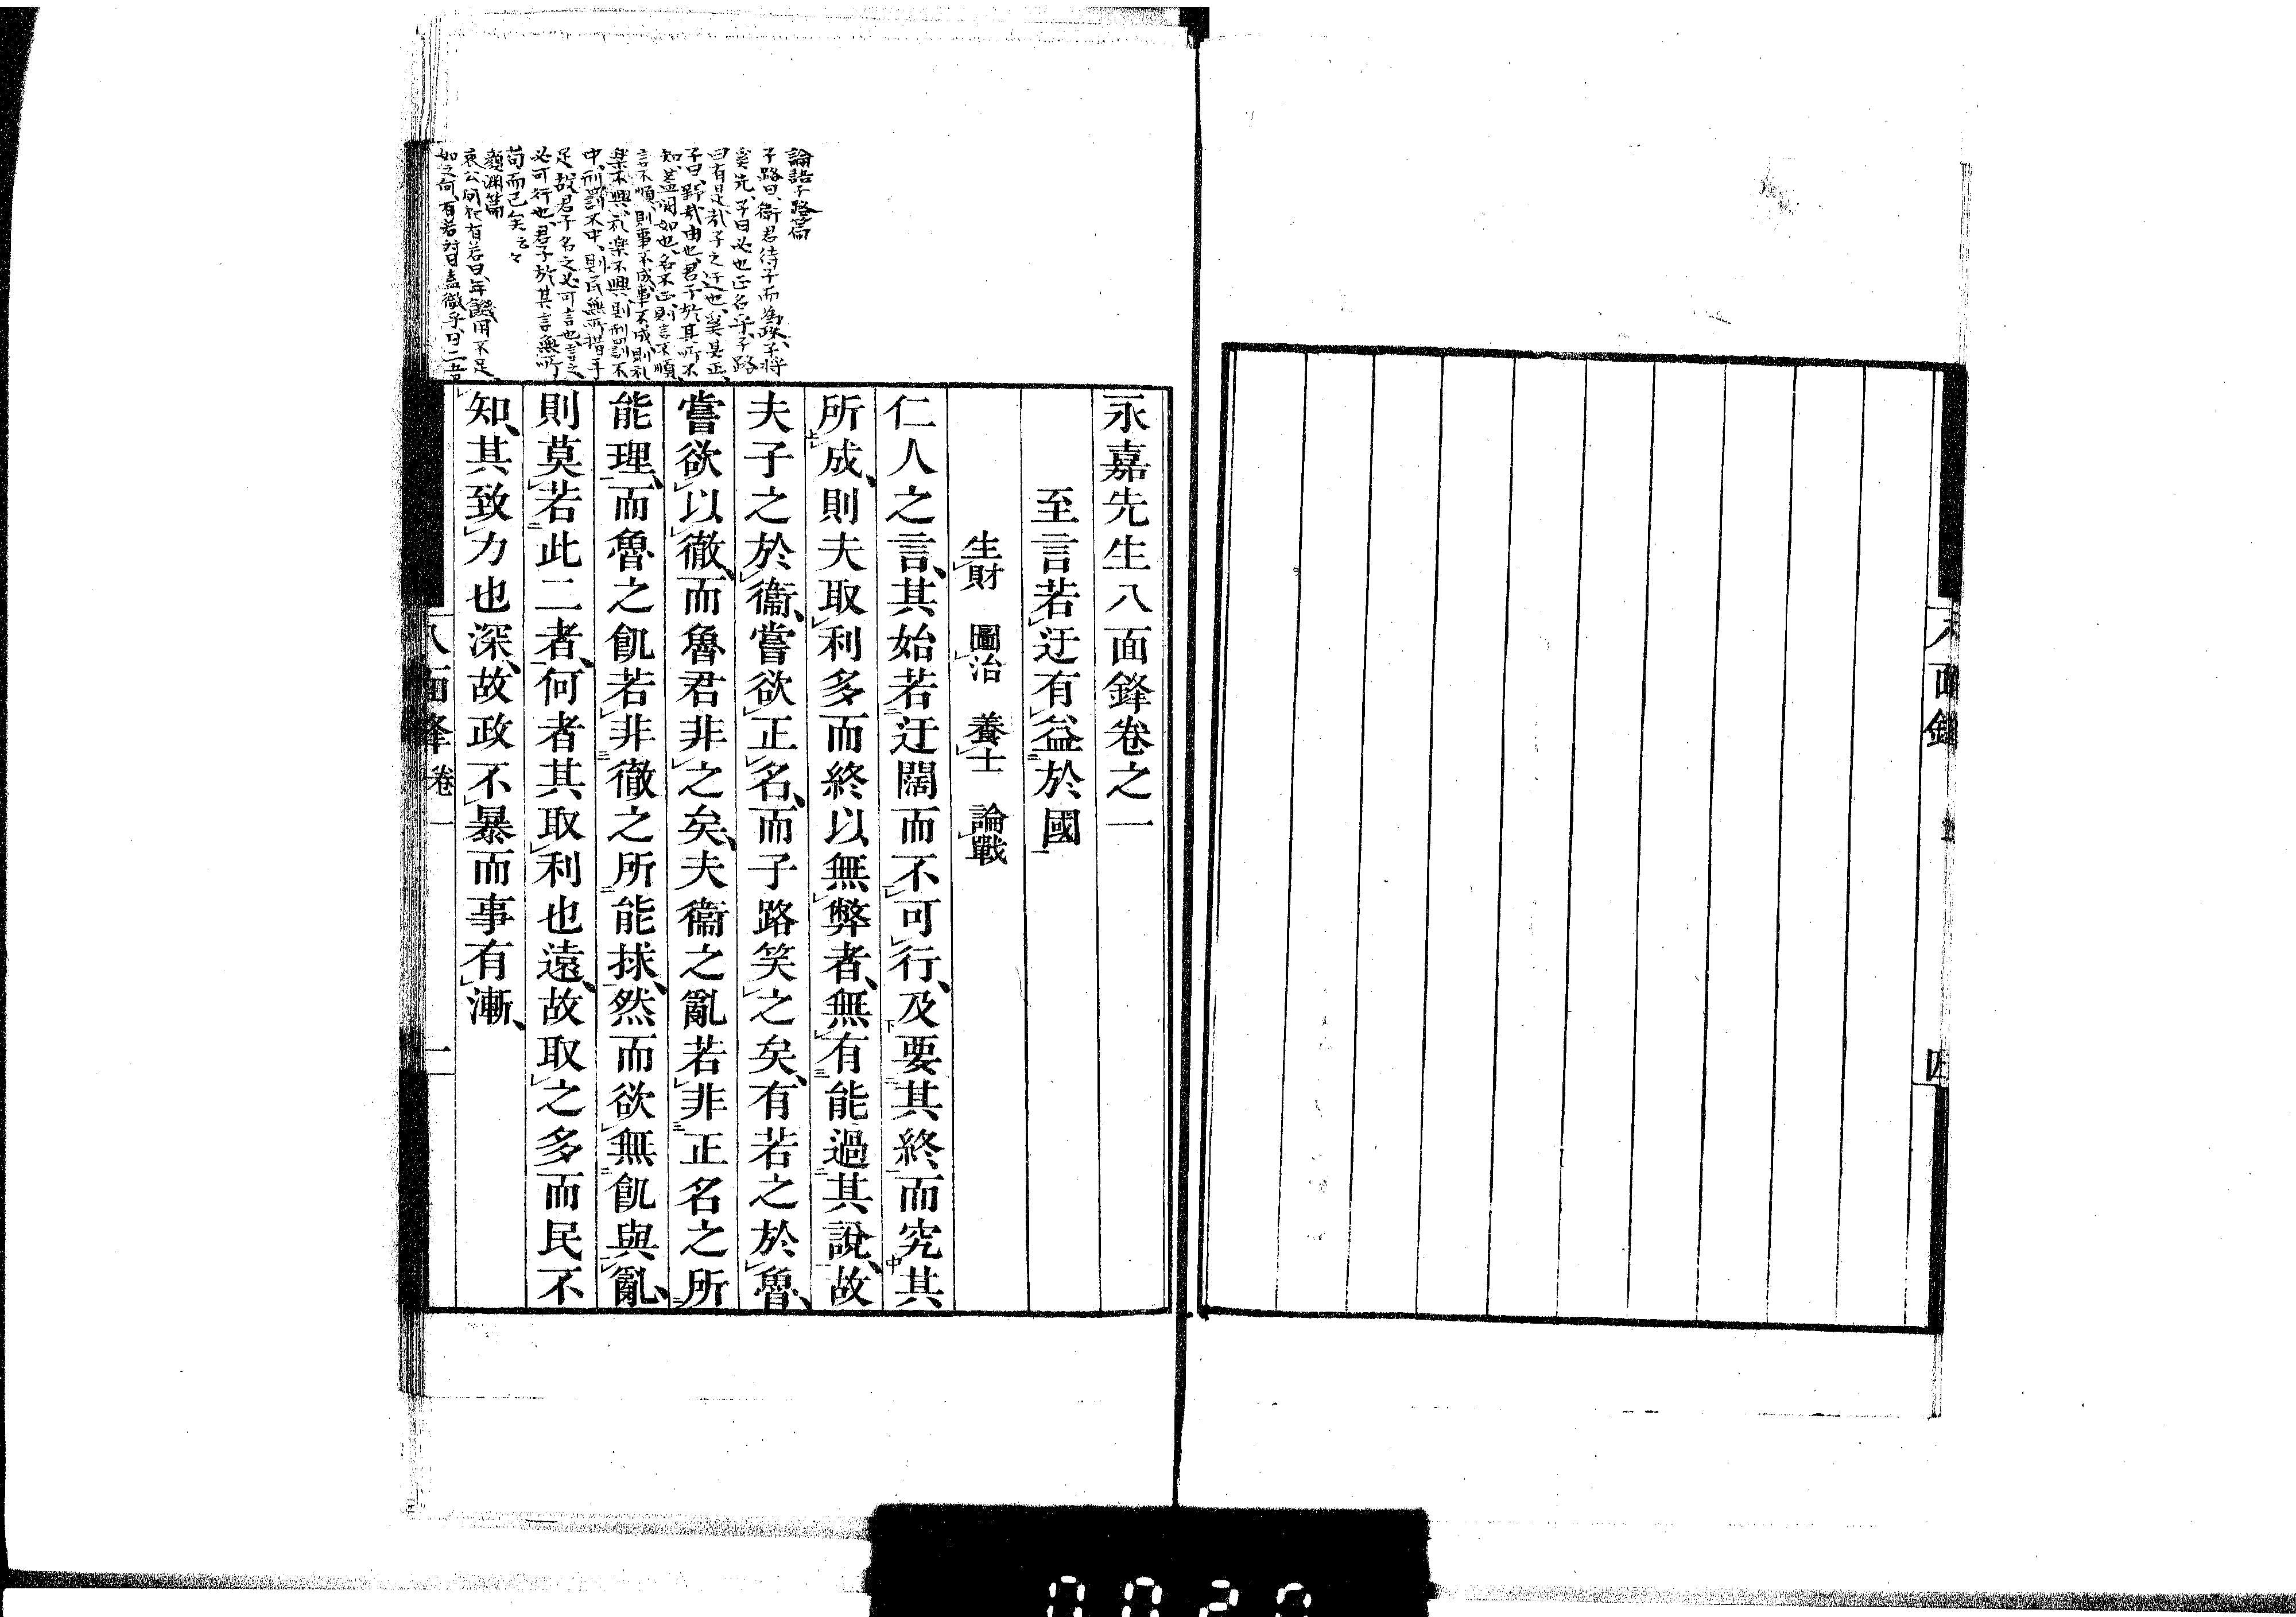 八面鋒
四
永嘉先生八面鋒卷之一
至言若迂有益於國
生財 圖治 養士 論戰
仁人之言其始若迂闊而不可行及要其終而究其
所成則夫取利多而終以無弊者無有能過其說故
夫子之於衞嘗欲正名而子路笑之矣有若之於魯
嘗欲以徹而魯君非之矣夫衞之亂若非正名之所
能理而魯之飢若非徹之所能捄然而欲無飢與亂
則莫若此二者何者其取利也遠故取之多而民不
知其致力也深故政不暴而事有漸
論語子路篇
子路曰、衞君待子而為政、子將
奚先、子曰必也正名乎、子路
曰有是哉子之迂也、奚其正、
子曰、野哉由也、君子於其所不
知、蓋闕如也、名不正、則言不順、
言不順、則事不成、事不成、則礼
楽不興、礼楽不興、則刑罰不
中、刑罰不中、則民無所措手
足、故君子名之必可言也、言之
必可行也、君子於其言無所
苟而已矣云々
顔渊篇
哀公問於有若曰、年饑用不足、
如之何、有若対曰盍徹乎、曰二吾
八面鋒 卷一
一
0020